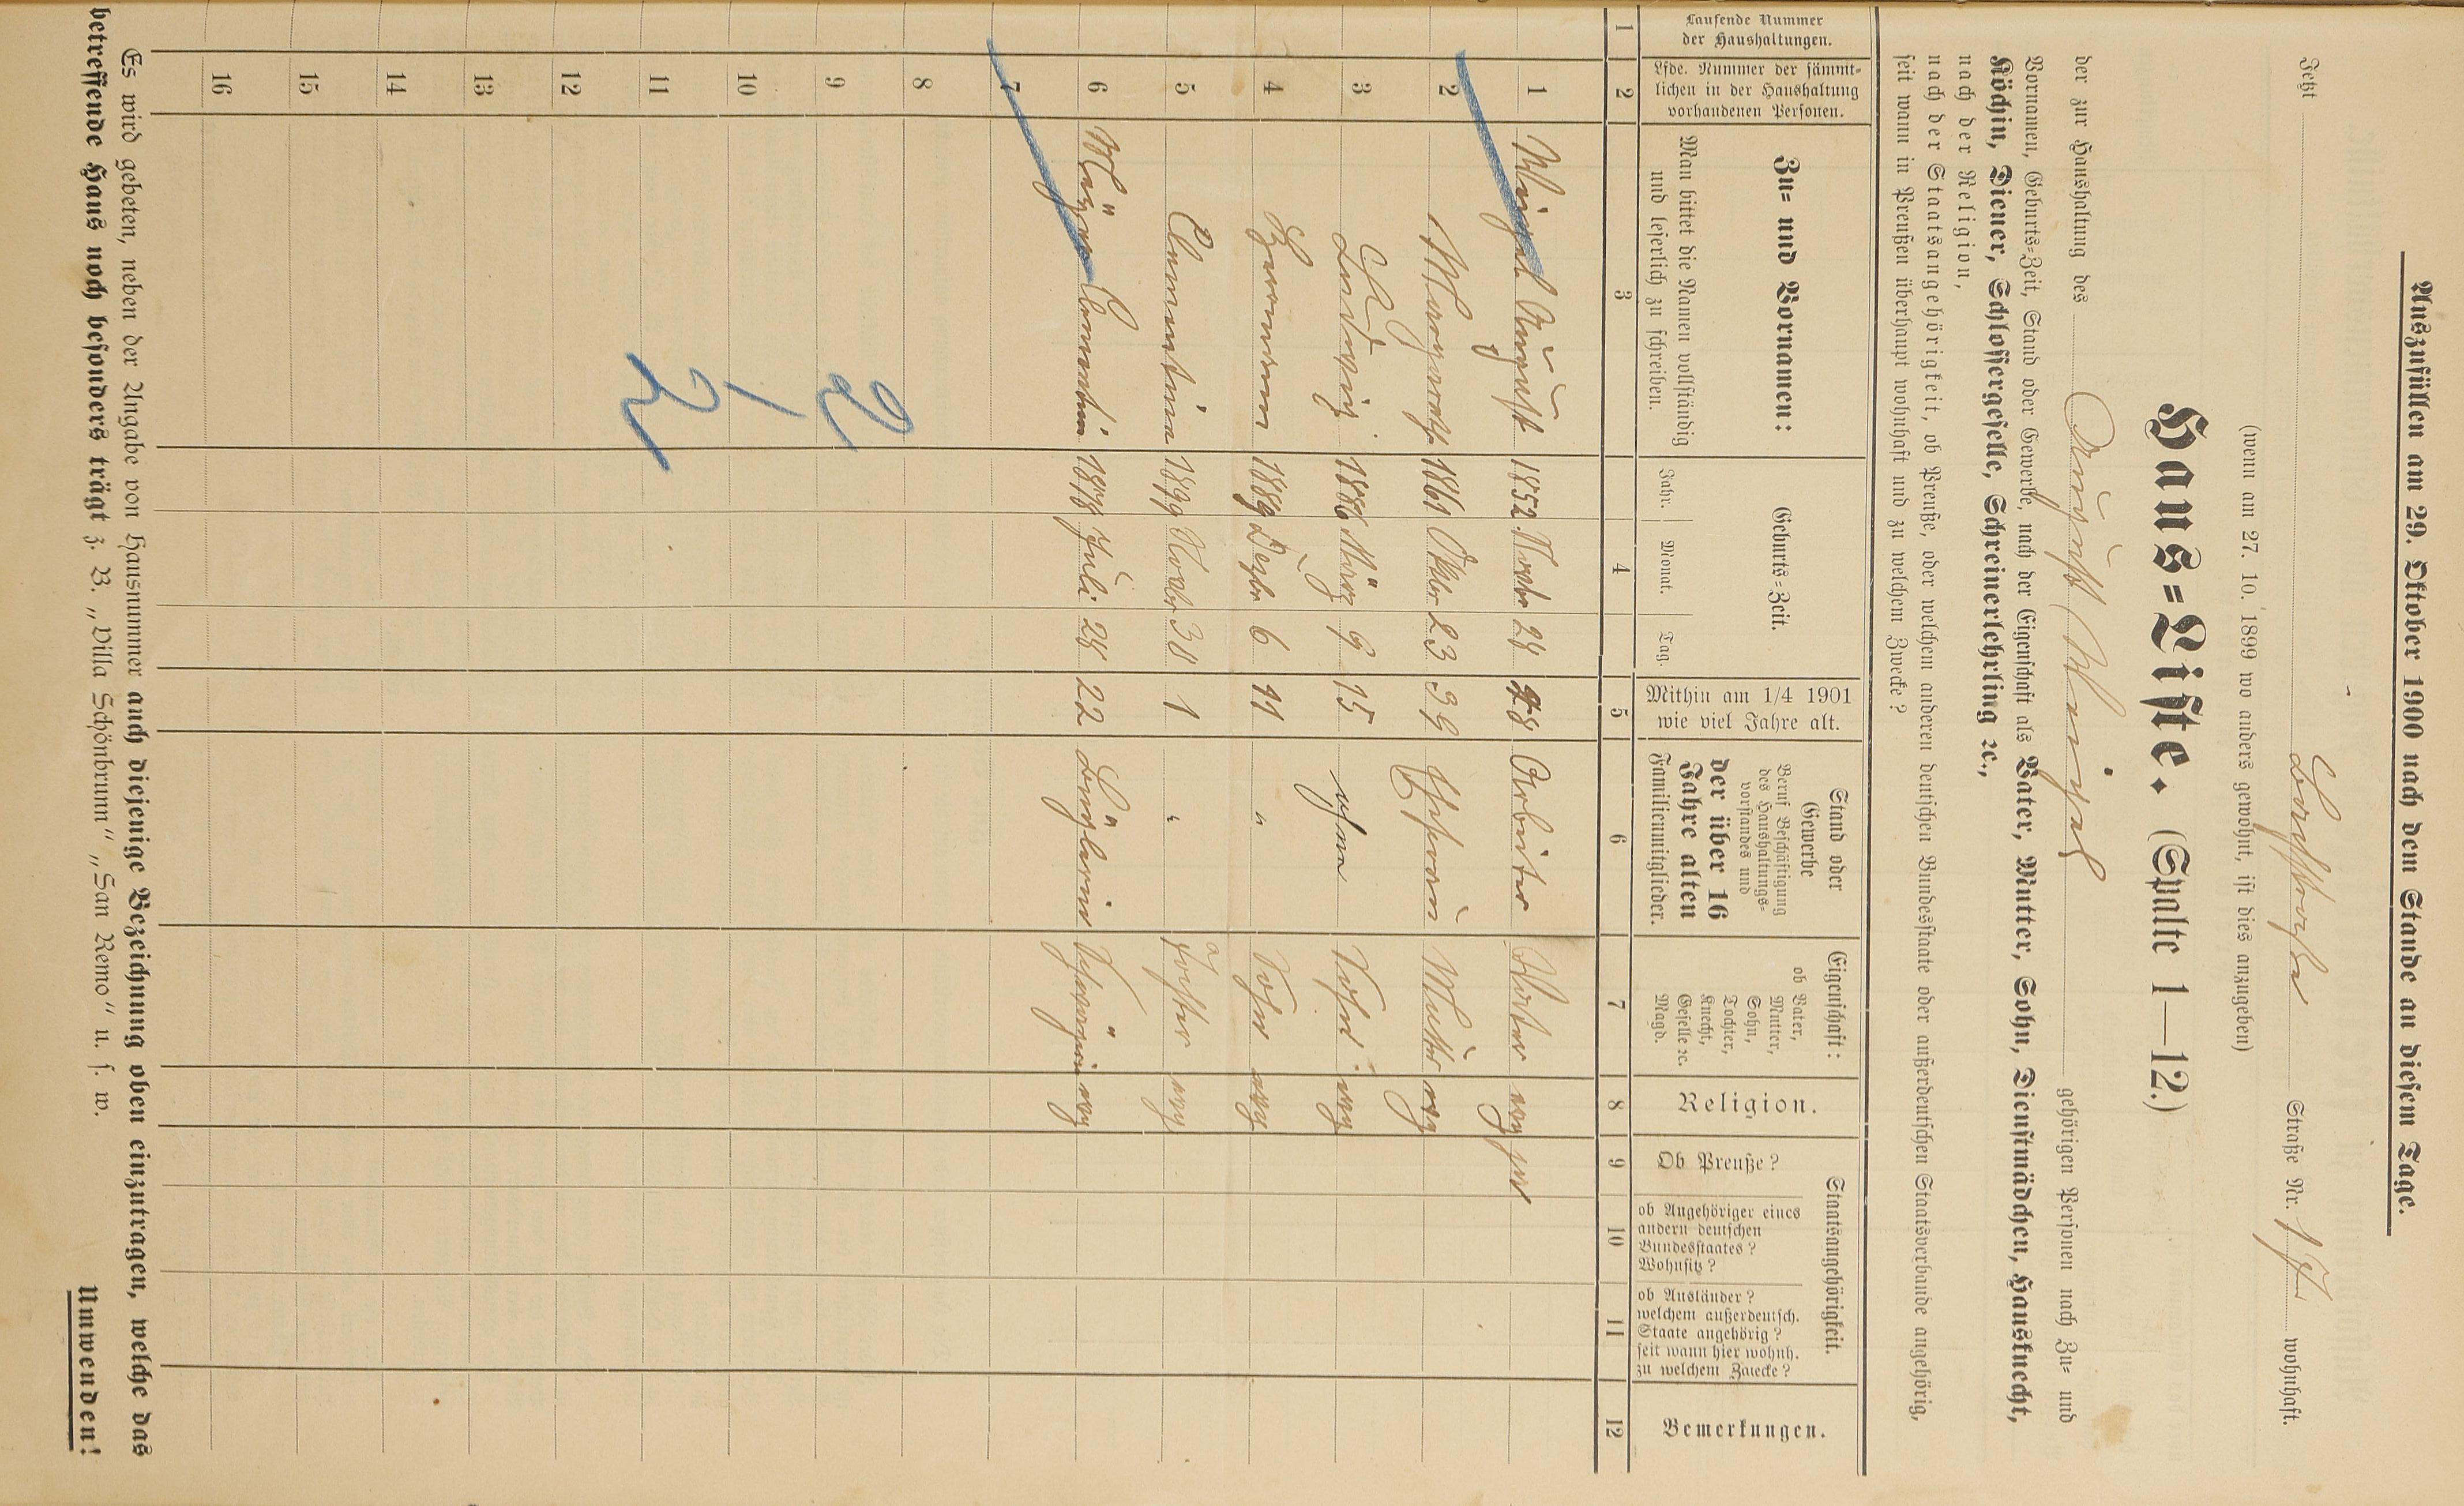 Auszufüllen am 29. Oktober 1900 nach dem Stande an diesem Tage.
Jetzt Dorfstraße Straße Nr. wohnhaft.
(wenn am 27. 10. 1899 wo anders gewohnt, ist dies anzugeben)
Haus=Liste. (Spalte 1—12.)
der zur Haushaltung des August Weigel gehörigen Personen nach Zu= und
Vornamen, Geburts=Zeit, Stand oder Gewerbe, nach der Eigenschaft als Vater, Mutter, Sohn, Dienstmädchen, Hausknecht,
Köchin, Diener, Schlossergeselle, Schreinerlehrling ꝛc.,
nach der Religion,
nach der Staatsangehörigkeit, ob Preuße, oder welchem anderen deutschen Bundesstaate oder außerdeutschen Staatsverbande angehörig,
seit wann in Preußen überhaupt wohnhaft und zu welchem Zwecke?
Laufende Nummer
der Haushaltungen.
Lfde. Nummer der sämmt=
lichen in der Haushaltung
vorhandenen Personen.
Zu= und Vornamen:
Man bittet die Namen vollständig
und leserlich zu schreiben.
Geburts=Zeit.
Jahr. Monat. Tag.
Mithin am 1/4 1901
wie viel Jahre alt.
Stand oder
Gewerbe
Beruf Beschäftigung
des Haushaltungs=
vorstandes und
der über 16
Jahre alten
Familienmitglieder.
Eigenschaft:
ob Vater,
Mutter,
Sohn,
Tochter,
Knecht,
Geselle ꝛc.
Magd.
Religion.
Staatsangehörigkeit.
Ob Preuße?
ob Angehöriger eines
andern deutschen
Bundesstaates?
Wohnsitz?
ob Ausländer?
welchem außerdeutsch.
Staate angehörig?
seit wann hier wohnh.
zu welchem Zwecke?
Bemerkungen.
1 2 3 4 5 6 7 8 9 10 11 12
1 Weigel August 1852 Novbr 28 48 Arbeiter Vater evg
2 Margareth 1861 Oktbr 23 39 Ehefrau Mutter evg
3 Ludwig 1886 März 9 15 ohne Sohn evg
4 Hermann 1889 Dezbr 6 11 " Sohn evg
5 Clementine 1899 Novbr 30 1 " Tochter evg
6 Clementin 1878 Juli 28 22 Büglerin Schwägerin evg
7
8
9 2
10 1
11
12
13
14
15
16
Es wird gebeten, neben der Angabe von Hausnummer auch diejenige Bezeichnung oben einzutragen, welche das
betreffende Haus noch besonders trägt z. B. „Villa Schönbrunn" „San Remo" u. s. w.
Umwenden!